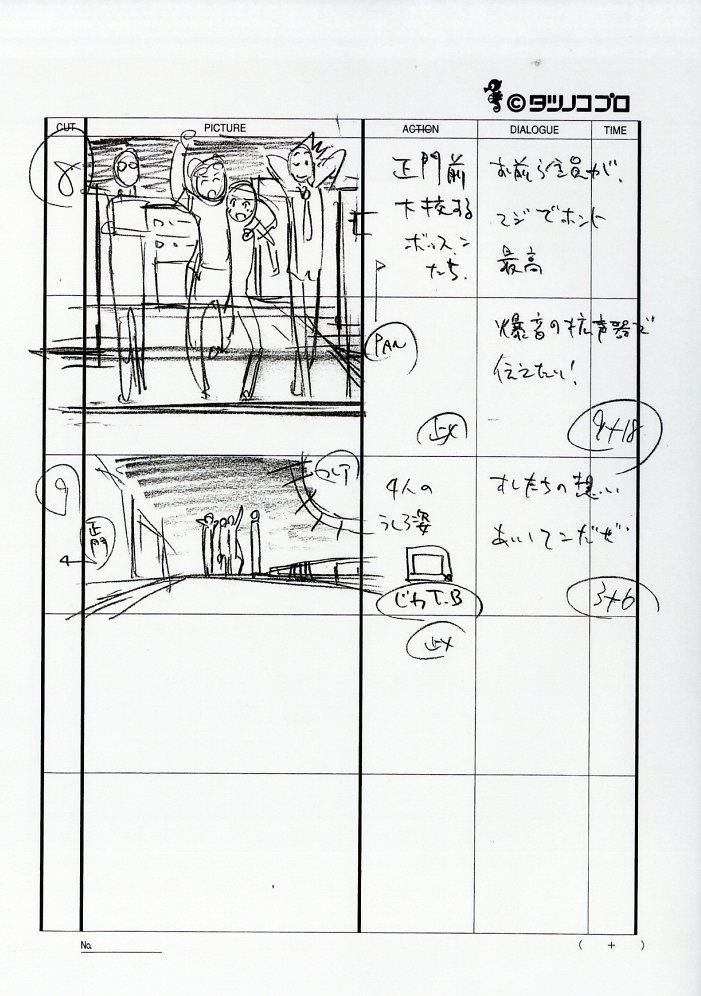 ©タツノコプロ
CUT PICTURE ACTION DIALOGUE TIME
8
正門前
下校する
ボッスン
たち.
お前ら全員が、
マジでホント
最高
PAN
爆音の拡声器で
伝えたい!
止メ
9+18
9
正門
4人の
うしろ姿
じわT.B
止メ
あいしてンだぜ
3+6
No.
( + )